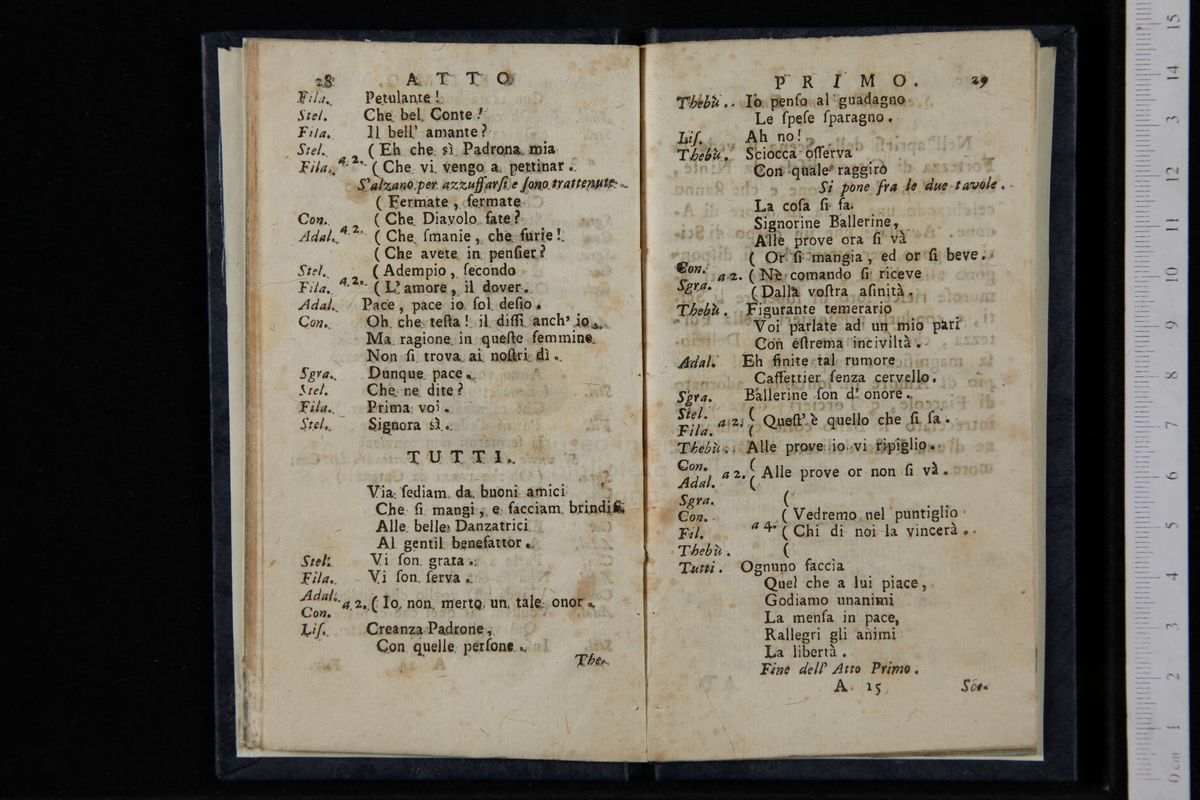 28 ATTO
Fila. Petulante!
Stel. Che bel Conte!
Fila. Il bell' amante?
Stel. (Eh che sì Padrona mia
Fila. a 2. (Che vi vengo a pettinar.
S'alzano per azzuffarſi e ſono trattenute.
(Fermate, fermate
Con. (Che Diavolo fate?
Adal. a 2. (Che ſmanie, che furie!
(Che avete in penſier?
Stel. (Adempio, ſecondo
Fila. a 2. (L'amore, il dover.
Adal. Pace, pace io ſol deſio.
Con. Oh che teſta! il diſſi anch' io.
Ma ragione in queſte femmine
Non ſi trova ai noſtri dì.
Sgra. Dunque pace.
Stel. Che ne dite?
Fila. Prima voi.
Stel. Signora sì.
TUTTI.
Via ſediam da buoni amici
Che ſi mangi, e facciam brindiſi
Alle belle Danzatrici
Al gentil benefattor.
Stel. Vi ſon grata.
Fila. Vi ſon ſerva.
Adal.
Con. a 2. (Io non merto un tale onor.
Liſ. Creanza Padrone,
Con quelle perſone.
The-
PRIMO. 29
Thebù. Io penſo al guadagno
Le ſpeſe ſparagno.
Liſ. Ah no!
Thebù. Sciocca oſſerva
Con quale raggirò
Si pone fra le due tavole.
La coſa ſi fa.
Signorine Ballerine,
Alle prove ora ſi và
(Or ſi mangia, ed or ſi beve.
Con.
Sgra. a 2. (Nè comando ſi riceve
(Dalla voſtra aſinità.
Thebù. Figurante temerario
Voi parlate ad un mio pari
Con eſtrema inciviltà.
Adal. Eh finite tal rumore
Caffettier ſenza cervello.
Sgra. Ballerine ſon d'onore.
Stel. (
Fila. a 2. ( Queſt' è quello che ſi fa.
Thebù. Alle prove io vi ripiglio.
Con. (
Adal. a 2. ( Alle prove or non ſi và.
Sgra. (
Con. (Vedremo nel puntiglio
Fil. a 4. (Chi di noi la vincerà.
Thebù. (
Tutti. Ognuno faccia
Quel che a lui piace,
Godiamo unanimi
La menſa in pace,
Rallegri gli animi
La libertà.
Fine dell' Atto Primo.
A 15 Sce-
15
14
13
12
11
10
9
8
7
6
5
4
3
2
1
0 cm